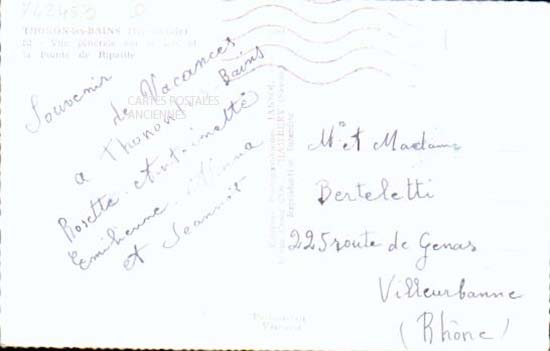 THONON-les-BAINS
52 - Vue générale sur le lac et
la Pointe de Ripaille
Souvenir
de Vacances
a Thonon les Bains
Rosette Antoinette
Emilienne
et Jeannot
CARTES POSTALES
ANCIENNES
Mr et Madame
Berteletti
225 route de Genas
Villeurbanne
(Rhône)